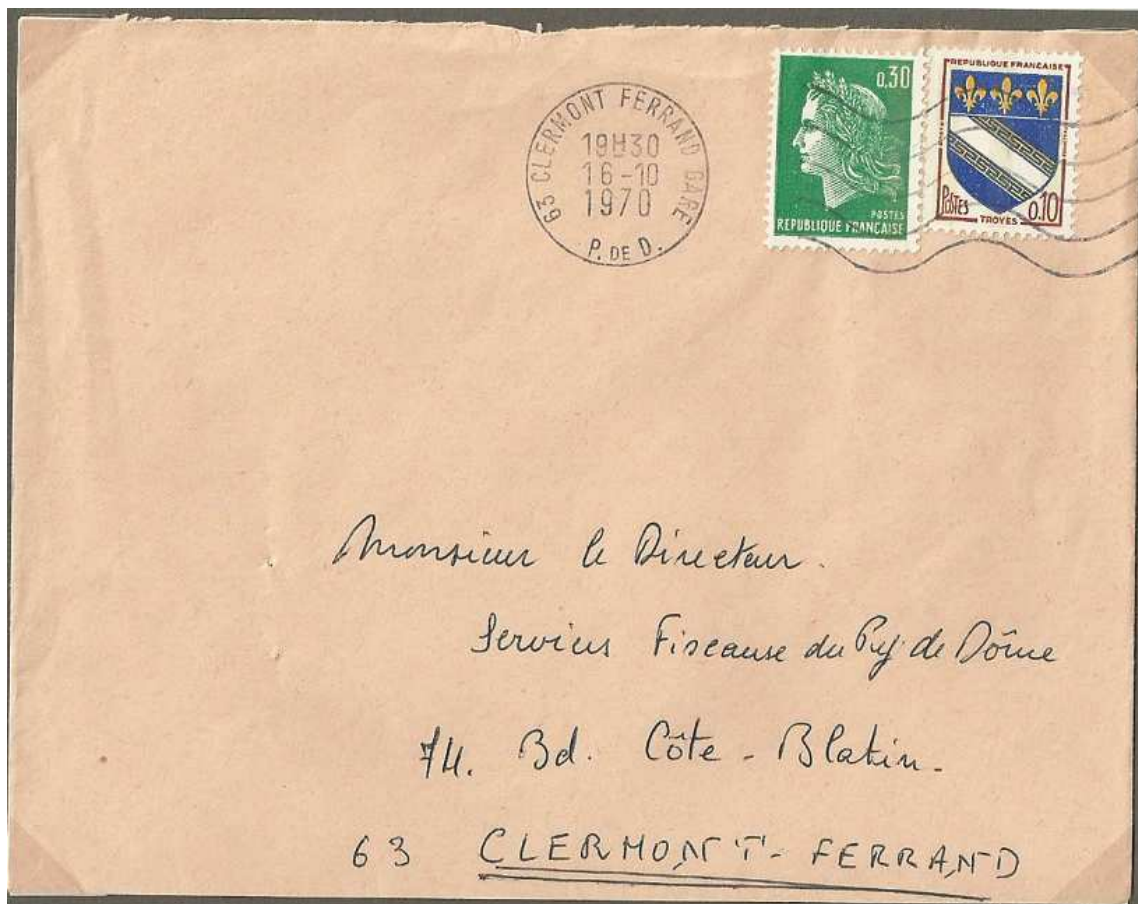 63 CLERMONT FERRAND GARE
19H30
16-10
1970
P. DE D.
0,30
POSTES
REPUBLIQUE FRANÇAISE
REPUBLIQUE FRANÇAISE
POSTES
0,10
TROYES
Monsieur le Directeur.
Services Fiscause du Puy de Dôme
74. Bd. Côte-Blatin-
63 CLERMONT-FERRAND